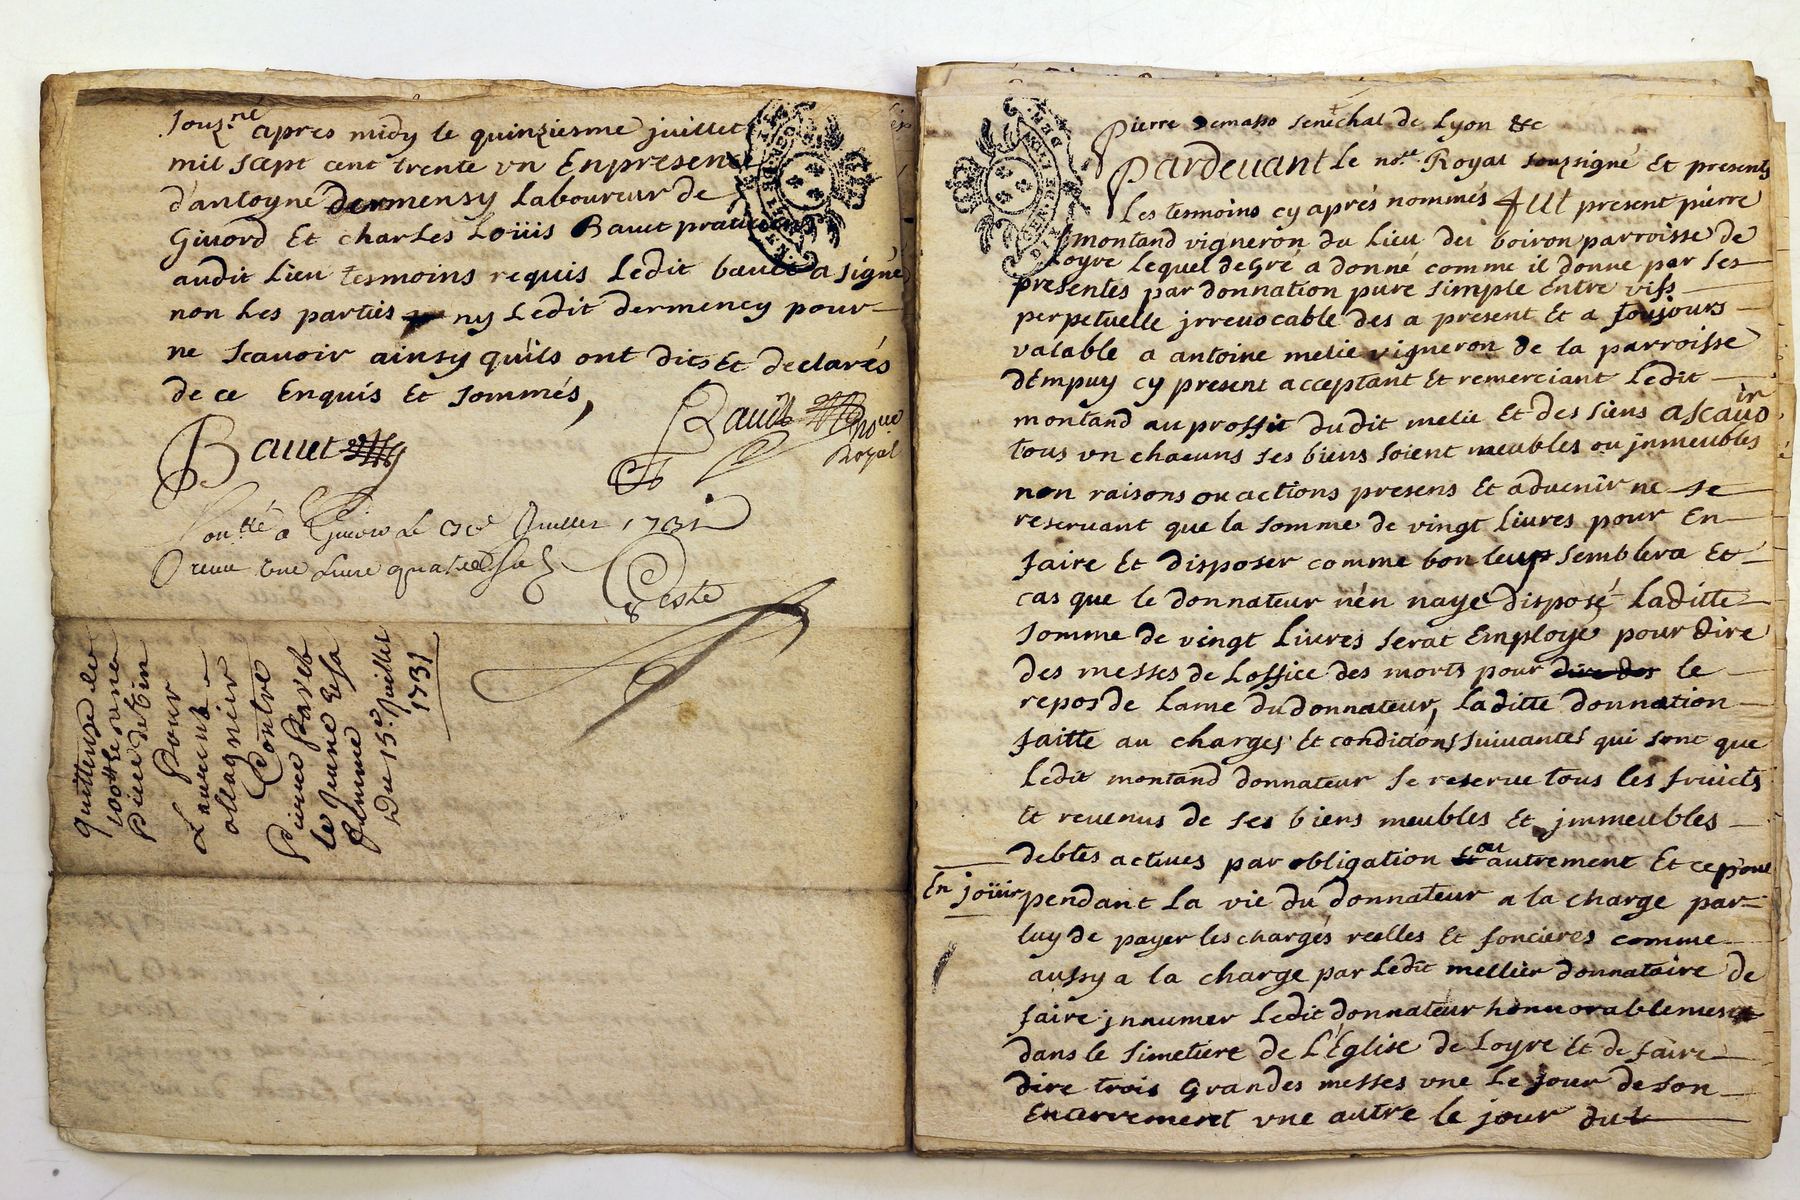 souz.né apres midy le quinziesme juillet
mil sept cent trente vn En presence
d'antoyne dermensy Laboureur de
Givord Et charles Loüis Bauet praticien
audit Lieu tesmoins requis Ledit bauet a signé
non Les parties ny Ledit dermency pour
ne scauoir ainsy quils ont dits Et declarés
de ce Enquis Et sommés,
Bauet
no.re
Royal
a Givord le juillet 1731
receu une Livre quatre
Teste
quittance de
100 tt Et
Pierre
Pour
Laurent
ollagnier
Contre
Pierre
le jeune Et sa
femme
Du 15.e juillet
1731
Pierre Demasso senechal de Lyon &c
Pardeuant Le no.re Royal souzsigné Et presents
Les tesmoins cy aprés nommés fut present pierre
montand vigneron du Lieu du boiron parroisse de
Loyre Lequel de Gré a donné comme il donne par ses
presentes par donnation pure simple Entre vifs
perpetuelle jrreuocable des a present Et a toujours
valable a antoine melie vigneron de la parroisse
dEmpuy cy present acceptant Et remerciant Ledit
montand au proffit dudit melie Et des siens ascauoir
tous vn chacuns ses biens soient meubles ou jnmeubles
non raisons ou actions presens Et aduenir ne se
reseruant que la somme de vingt Liures pour En
faire Et disposer comme bon leur semblera Et
cas que le donnateur nén naye disposé Laditte
somme de vingt Liures serat Employé pour dire
des messes de Loffice des morts pour dire des le
repos de Lame du donnateur, Laditte donnation
faitte au charges Et conditions suiuantes qui sont que
Ledit montand donnateur se reserue tous les fruicts
Et reuenus de ses biens meubles Et jmmeubles
debtes actiues par obligation Et ou autrement Et ce pour
En joüir pendant La vie du donnateur a la charge par
luy de payer les chargés reelles Et foncieres comme
aussy a la charge par Ledit mellier donnataire de
faire jnnumer Ledit donnateur honnorablement
dans le simetiere de L'Eglise de Loyre Et de faire
dire trois Grandes messes vne Le jour de son
Enterrement vne autre le jour du